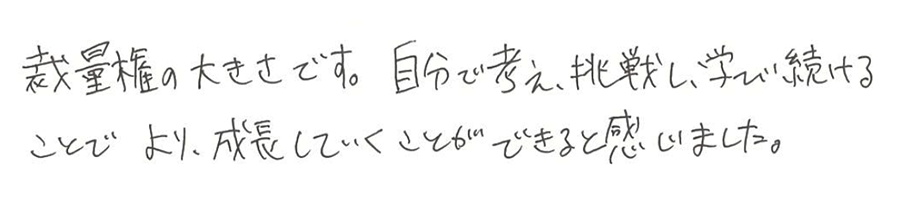 裁量権の大きさです。自分で考え、挑戦し、学び続ける
ことでより、成長していくことができると感じました。